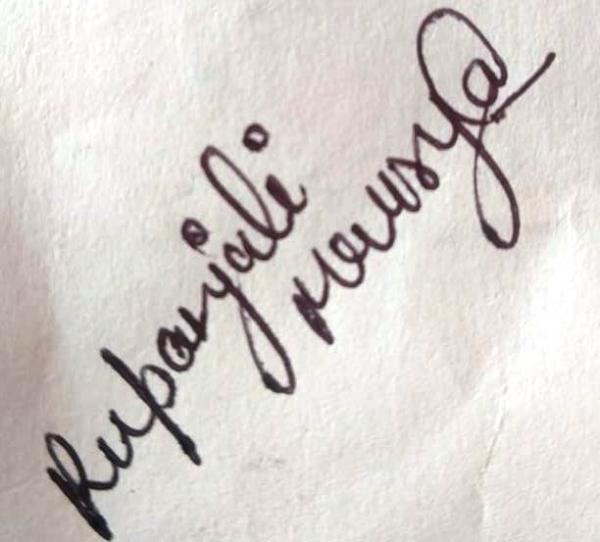 Rupanjali
Maurya